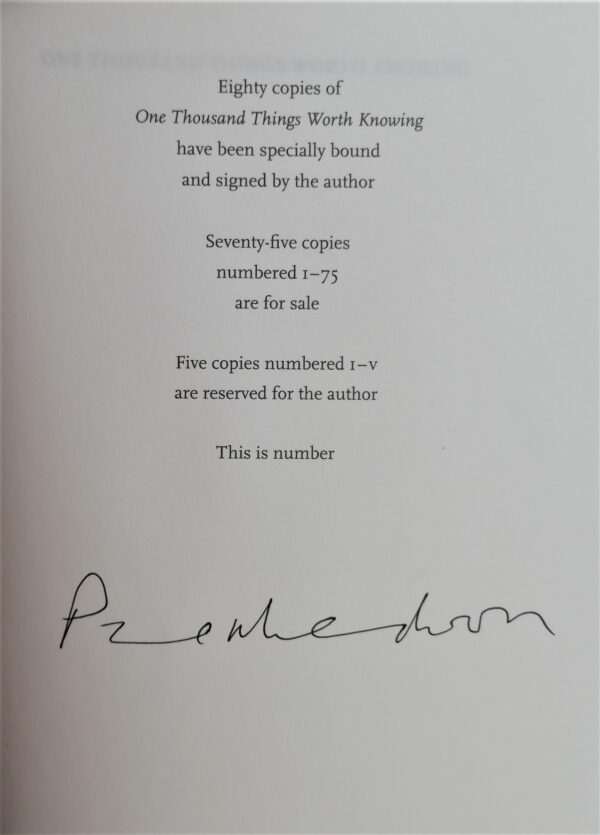 Eighty copies of
One Thousand Things Worth Knowing
have been specially bound
and signed by the author
Seventy-five copies
numbered 1–75
are for sale
Five copies numbered I–V
are reserved for the author
This is number